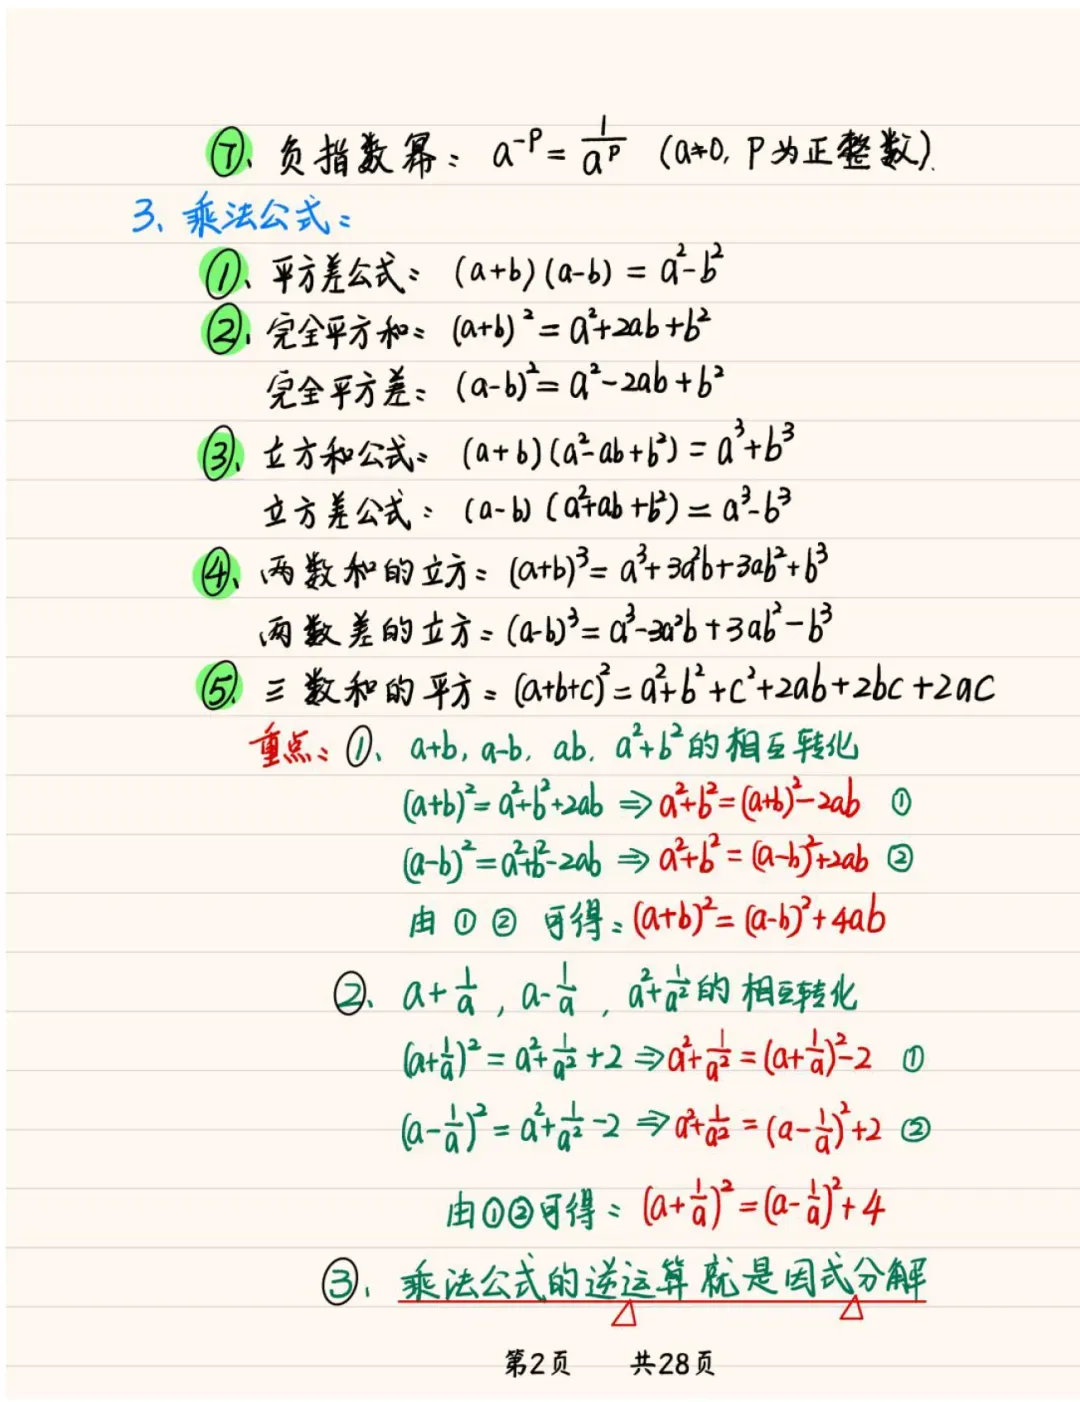 ⑦、负指数幂：a⁻ᴾ=1/aᴾ (a≠0, P为正整数).
3、乘法公式：
①、平方差公式：(a+b)(a-b)=a²-b²
②、完全平方和：(a+b)²=a²+2ab+b²
完全平方差：(a-b)²=a²-2ab+b²
③、立方和公式：(a+b)(a²-ab+b²)=a³+b³
立方差公式：(a-b)(a²+ab+b²)=a³-b³
④、两数和的立方：(a+b)³=a³+3a²b+3ab²+b³
两数差的立方：(a-b)³=a³-3a²b+3ab²-b³
⑤、三数和的平方：(a+b+c)²=a²+b²+c²+2ab+2bc+2ac
重点：①、a+b, a-b, ab, a²+b²的相互转化
(a+b)²=a²+b²+2ab ⇒ a²+b²=(a+b)²-2ab ①
(a-b)²=a²+b²-2ab ⇒ a²+b²=(a-b)²+2ab ②
由①②可得：(a+b)²=(a-b)²+4ab
②、a+1/a, a-1/a, a²+1/a²的相互转化
(a+1/a)²=a²+1/a²+2 ⇒ a²+1/a²=(a+1/a)²-2 ①
(a-1/a)²=a²+1/a²-2 ⇒ a²+1/a²=(a-1/a)²+2 ②
由①②可得：(a+1/a)²=(a-1/a)²+4
③、乘法公式的逆运算就是因式分解
第2页 共28页